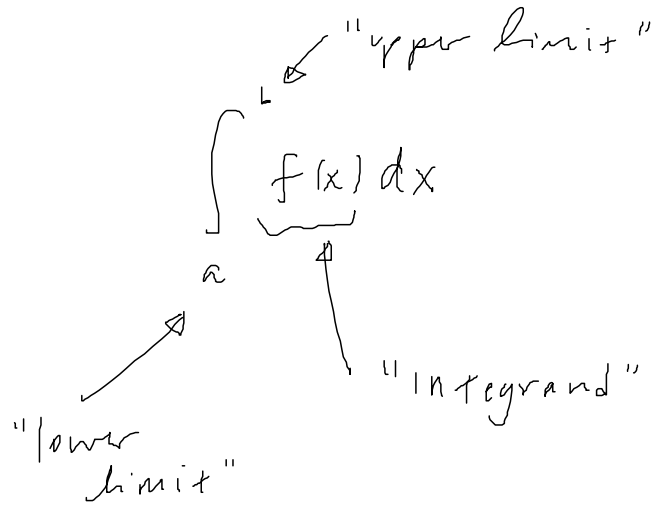 "upper limit"
b
∫ f(x) dx
a
"Integrand"
"lower
limit"